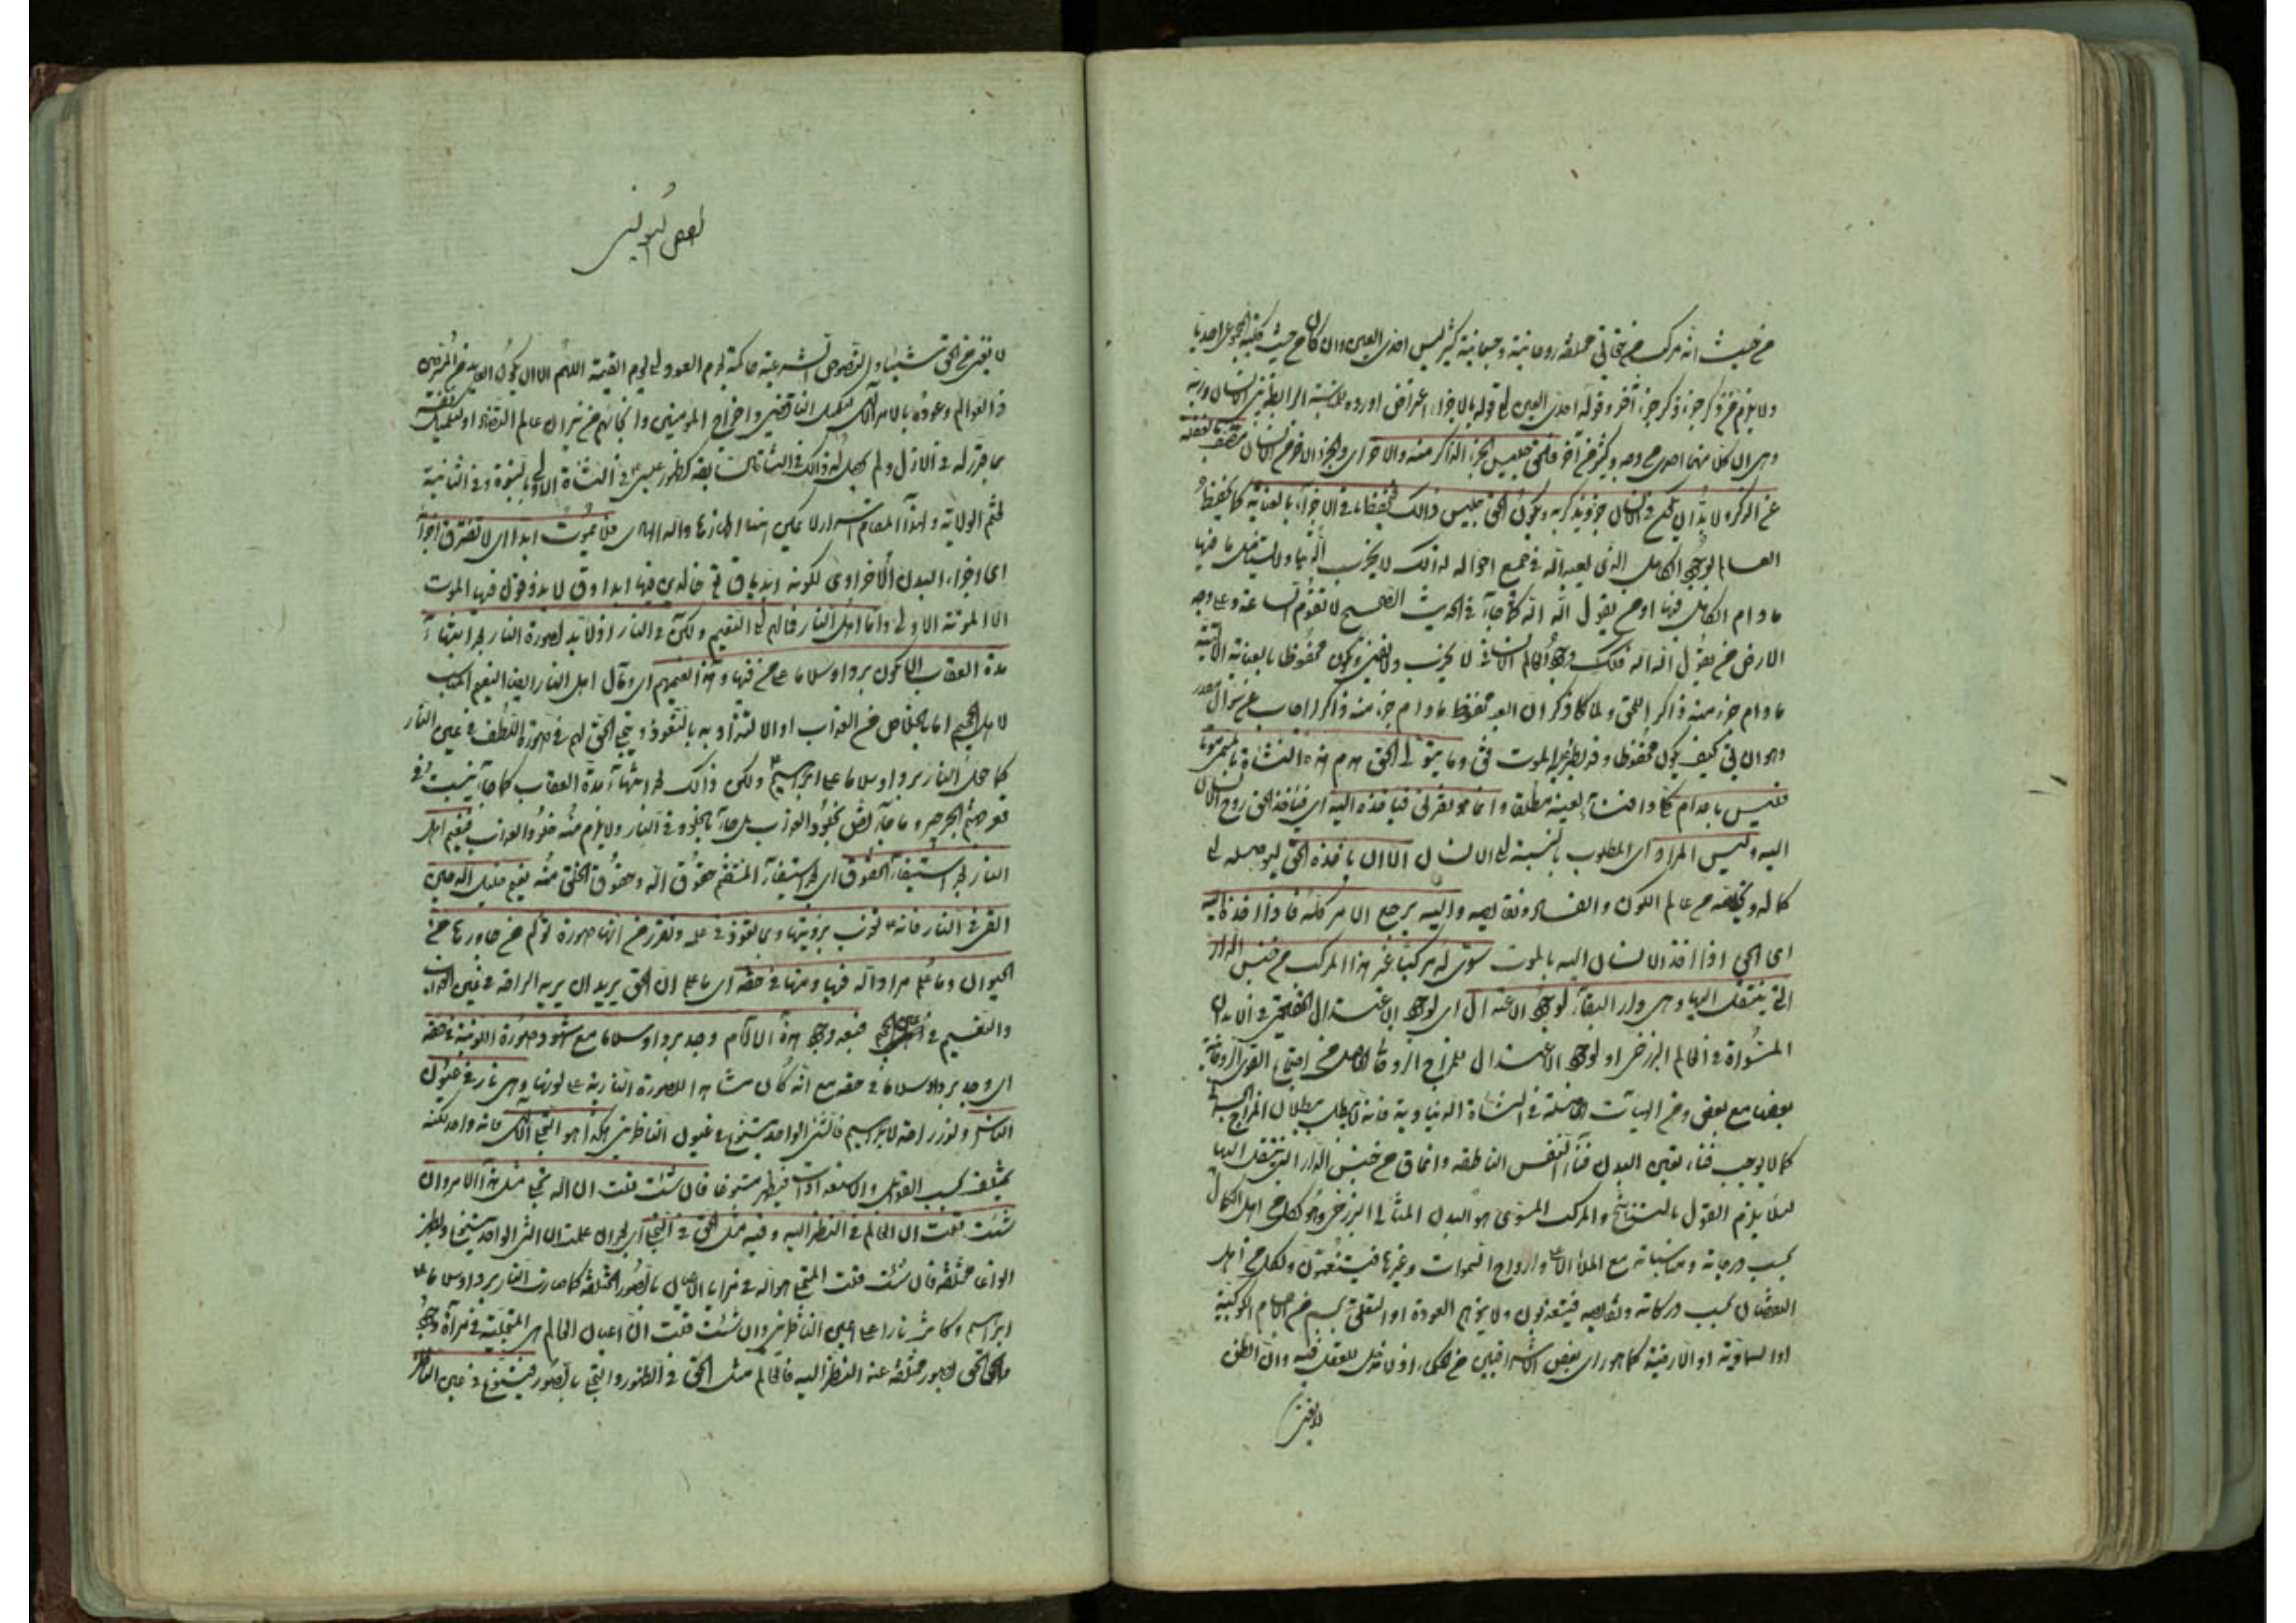 من حيث انه مركب من حقائق مختلفة روحانية وجسمانية كثير ليس احدى العين وان كان من حيث كليته المجموعى احديا
ولا يلزم من ذكر جزء ذكر جزء آخر وقوله احدى العين الى قوله بالاجزاء اعتراض اورده الرابطة بين الانسان وربه
وهى ان كل منهما احدى من وجه وكثير من آخر فالحق جليس الجزء الذاكر منه والآخر اى والجزء الآخر من الانسان متصف بالغفلة
عن الذكر ولا بد ان يكون فى الانسان جزء يذكر به ويكون الحق جليس ذلك فيحفظ باقى الاجزاء بالعناية كما يحفظ
العالم بوجود الكامل الذى يعبد الله فى جميع احواله لذلك لا يخرب الدنيا ولا يستأصل ما فيها
ما دام الكامل فيها او من يقول الله الله كما جاء فى الحديث الصحيح لا تقوم الساعة وعلى وجه
الارض من يقول الله الله فكذلك وجود العالم الانسانى لا يخرب ولا يفنى ويكون محفوظا بالعناية الالهية
ما دام جزء منه ذاكرا للحق ولما كان ذكر ان العبد محفوظ ما دام جزء منه ذاكرا اجاب عن سؤال مقدر
وهو ان يق كيف يكون محفوظا وقد يطرء عليه الموت فق وما يتولى الحق هدم هذه النشاة بالمسمى موتا
فليس باعدام كما وافناء لعينه مطلقا وانما هو تفريق فيأخذه اليه اى فيأخذ الحق روح الانسان
اليه وليس المراد اى المطلوب بالنسبة الى الانسان الا ان يأخذه الحق ليوصله الى
كماله ويخلصه من عالم الكون والفساد ونقايصه واليه يرجع الامر كله فاذا اخذه اليه
اى الحق اذا اخذ الانسان اليه بالموت سوى له مركبا غير هذا المركب من جنس الدار
التى ينتقل اليها وهى دار البقاء لوجود الاعتدال اى لوجود الاعتدال الحقيقى فى الابدان
المسواة فى العالم البرزخى او لوجود الاعتدال للمزاج الروحانى الحاصل من اجتماع القوى الروحانية
بعضها مع بعض ومن الهيآت الحاصلة فى النشاة الدنياوية فانه لا يبطل ببطلان المزاج الجسمانى
كما لا يوجب فناء تعين البدن فناء النفس الناطقة وانما ق من جنس الدار التى ينتقل اليها
لئلا يلزم القول بالتناسخ والمركب المسوى هو البدن المثالى البرزخى وهو لكل من اهل الكمال
بحسب درجاته ومناسباته مع الملأ الاعلى وارواح السموات وغيرها فيتنعمون ولكل من اهل
النقصان بحسب دركاته ونقايصه فيتعذبون ولا يجوز لهم العودة او التعلق بجسم من الاجسام الكوكبية
او السماوية او الارضية كما هو راى بعض الاشراقيين من الحكماء اذ لا مدخل للعقل فيه وان الظن
لا يغنى
الفص اليونسى
لا يغنى من الحق شيئا والنصوص الشرعية حاكمة بعدم العود الى يوم القيمة اللهم الا ان يكون العايد من المتصرفين
فى العوالم وعوده بالامر الالهى لتكميل الناقصين واخراج المؤمنين وانجائهم من نيران عالم التضاد او لتكميل نفسه
بما قدر له فى الازل ولم يحصل له ذلك فى النشاة السابقة كظهور عيسى فى النشاة الاولى بالنبوة وفى الثانية
بختم الولاية ولهذا المقام اسرار لا يمكن اظهارها والله الهادى فلا يموت ابدا اى لا تفترق اجزاءه
اى اجزاء البدن الاخراوى لكونه ابديا ق تع خالدين فيها ابدا وق لا يذوقون فيها الموت
الا الموتة الاولى واما اهل النار فمآلهم الى النعيم ولكن فى النار اذ لا بد لصورة النار بعد انتهاء
مدة العقاب ان يكون بردا وسلاما على من فيها وهذا نعيمهم اى ومآل اهل النار ايضا النعيم المناسب
لاهل الجحيم اما بالخلاص من العذاب او الالتذاذ به بالتعوذ وتجلى الحق لهم فى صورة اللطف فى عين النار
كما جعل النار بردا وسلاما على ابراهيم ولكن ذلك بعد انتهاء مدة العقاب كما جاء ينبت فى
قعر جهنم الجرجير وما جاء نص بخلود العذاب بل جاء بالخلود فى النار ولا يلزم منه خلود العذاب فنعيم اهل
النار بعد استيفاء الحقوق اى بعد استيفاء المنتقم حقوق الله وحقوق الخلق منه نعيم خليل الله حين
القى فى النار فانه تعذب برؤيتها وبما تعود فى علمه وتقرر من انها صورة تؤلم من جاورها من
الحيوان وما علم مراد الله فيها ومنها فى حقه اى ما علم ان الحق يريد ان يريه الراحة فى عين العذاب
والنعيم فى الجحيم فبعد وجود هذه الآلام وجد بردا وسلاما مع شهود صورة اللونية فى حقه
اى وجد بردا وسلاما فى حقه مع انه كان مشاهدا للصورة النارية على لونها وهى نار فى عيون
الناس ونور وراحة لابراهيم فالشئ الواحد يتنوع فى عيون الناظرين هكذا هو التجلى الالهى فانه واحد لكنه
يختلف بحسب القوابل والاستعدادات فيظهر متنوعا فان شئت قلت ان الله تجلى مثل هذا الامر وان
شئت قلت ان العالم فى النظر اليه وفيه مثل الحق فى التجلى اى بعد ان علمت ان الشئ الواحد يتنوع ويظهر
انواعا مختلفة فان شئت قلت المتجلى هو الله فى مرايا الاعيان بالصور المختلفة كما صارت النار بردا وسلاما على
ابراهيم وكانت نارا على اعين الناظرين وان شئت قلت ان اعيان العالم هى المتجلية فى مرآة وجود
الحق بصور مختلفة عند النظر اليه فالعالم مثل الحق فى الظهور والتجلى بالصور فيتنوع فى عين الناظر